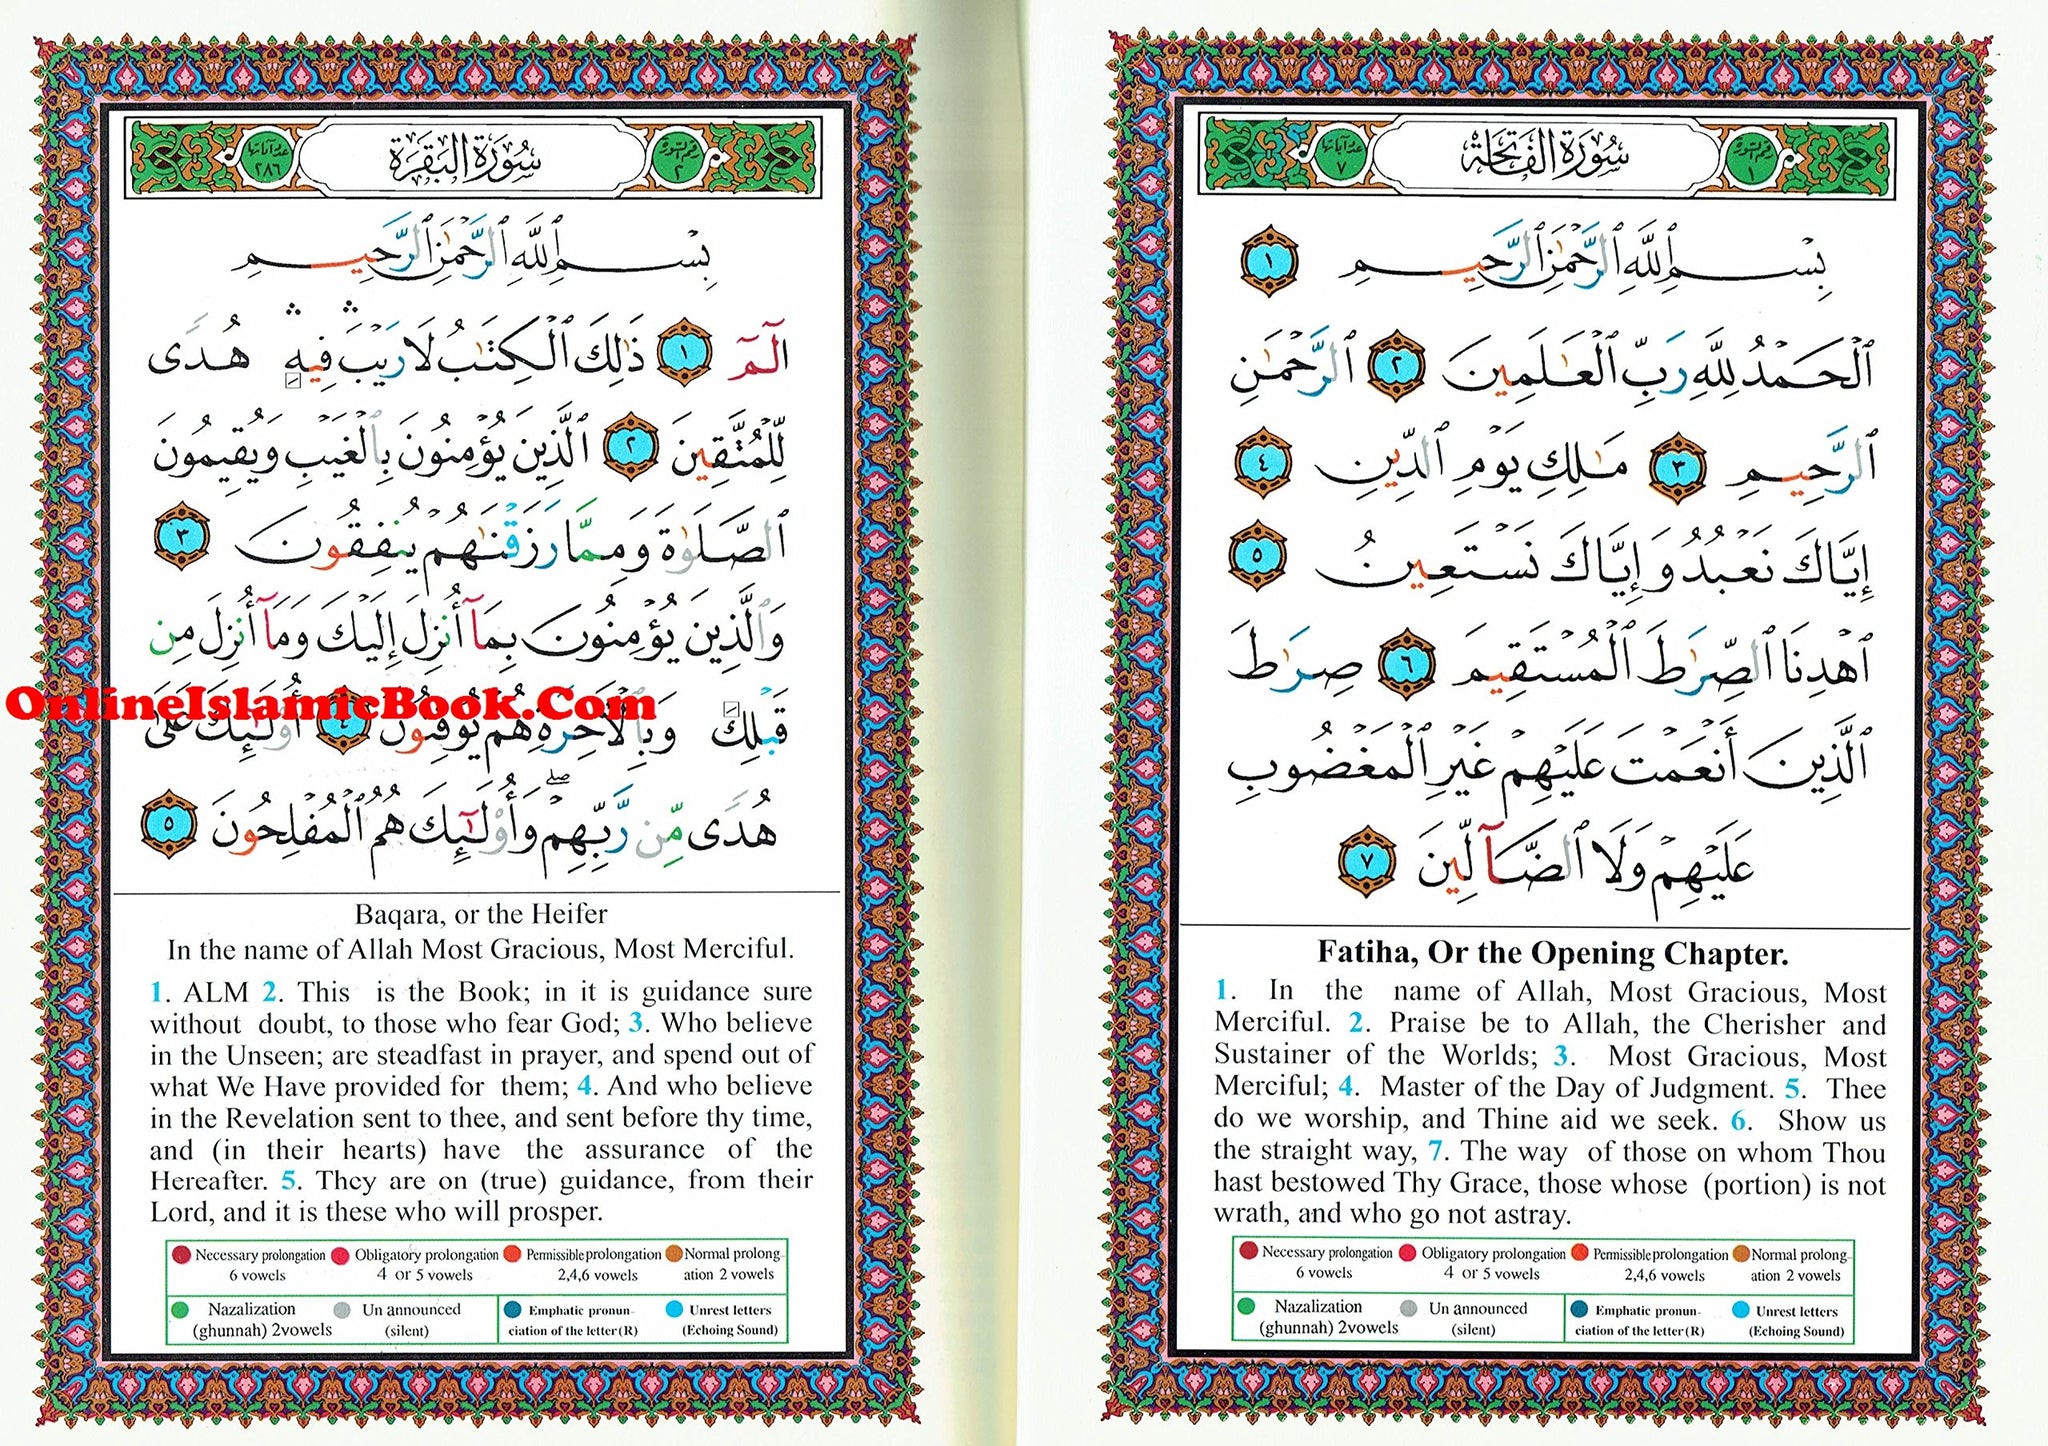 سُورَةُ الفَاتِحَة
رقم السورة ١
عدد آياتها ٧
بِسْمِ ٱللَّهِ ٱلرَّحْمَٰنِ ٱلرَّحِيمِ ١
ٱلْحَمْدُ لِلَّهِ رَبِّ ٱلْعَٰلَمِينَ ٢ ٱلرَّحْمَٰنِ
ٱلرَّحِيمِ ٣ مَٰلِكِ يَوْمِ ٱلدِّينِ ٤
إِيَّاكَ نَعْبُدُ وَإِيَّاكَ نَسْتَعِينُ ٥
ٱهْدِنَا ٱلصِّرَٰطَ ٱلْمُسْتَقِيمَ ٦ صِرَٰطَ
ٱلَّذِينَ أَنْعَمْتَ عَلَيْهِمْ غَيْرِ ٱلْمَغْضُوبِ
عَلَيْهِمْ وَلَا ٱلضَّآلِّينَ ٧
Fatiha, Or the Opening Chapter.
1. In the name of Allah, Most Gracious, Most
Merciful. 2. Praise be to Allah, the Cherisher and
Sustainer of the Worlds; 3. Most Gracious, Most
Merciful; 4. Master of the Day of Judgment. 5. Thee
do we worship, and Thine aid we seek. 6. Show us
the straight way, 7. The way of those on whom Thou
hast bestowed Thy Grace, those whose (portion) is not
wrath, and who go not astray.
Necessary prolongation Obligatory prolongation Permissible prolongation Normal prolong-
6 vowels 4 or 5 vowels 2,4,6 vowels ation 2 vowels
Nazalization Un announced Emphatic pronun- Unrest letters
(ghunnah) 2vowels (silent) ciation of the letter (R) (Echoing Sound)
سُورَةُ البَقَرَة
رقم السورة ٢
عدد آياتها ٢٨٦
بِسْمِ ٱللَّهِ ٱلرَّحْمَٰنِ ٱلرَّحِيمِ
الٓمٓ ١ ذَٰلِكَ ٱلْكِتَٰبُ لَا رَيْبَ ۛ فِيهِ ۛ هُدًى
لِّلْمُتَّقِينَ ٢ ٱلَّذِينَ يُؤْمِنُونَ بِٱلْغَيْبِ وَيُقِيمُونَ
ٱلصَّلَوٰةَ وَمِمَّا رَزَقْنَٰهُمْ يُنفِقُونَ ٣
وَٱلَّذِينَ يُؤْمِنُونَ بِمَآ أُنزِلَ إِلَيْكَ وَمَآ أُنزِلَ مِن
قَبْلِكَ وَبِٱلْأَخِرَةِ هُمْ يُوقِنُونَ ٤ أُو۟لَٰٓئِكَ عَلَىٰ
هُدًى مِّن رَّبِّهِمْ ۖ وَأُو۟لَٰٓئِكَ هُمُ ٱلْمُفْلِحُونَ ٥
OnlineIslamicBook.Com
Baqara, or the Heifer
In the name of Allah Most Gracious, Most Merciful.
1. ALM 2. This is the Book; in it is guidance sure
without doubt, to those who fear God; 3. Who believe
in the Unseen; are steadfast in prayer, and spend out of
what We Have provided for them; 4. And who believe
in the Revelation sent to thee, and sent before thy time,
and (in their hearts) have the assurance of the
Hereafter. 5. They are on (true) guidance, from their
Lord, and it is these who will prosper.
Necessary prolongation Obligatory prolongation Permissible prolongation Normal prolong-
6 vowels 4 or 5 vowels 2,4,6 vowels ation 2 vowels
Nazalization Un announced Emphatic pronun- Unrest letters
(ghunnah) 2vowels (silent) ciation of the letter (R) (Echoing Sound)